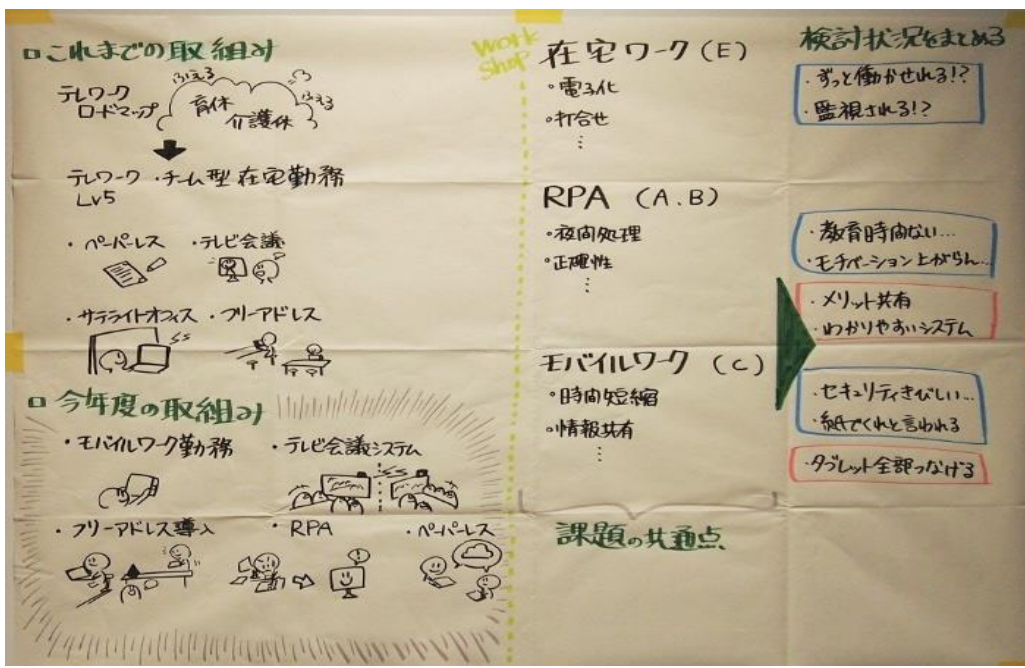 これまでの取組み
テレワーク
ロードマップ
ふえる
育休
介護休
ふえる
テレワーク
Lv5
・チーム型在宅勤務
・ペーパーレス
・テレビ会議
・サテライトオフィス
・フリーアドレス
今年度の取組み
・モバイルワーク勤務
・テレビ会議システム
・フリーアドレス導入
・RPA
・ペーパーレス
Work
Shop
在宅ワーク(E)
・電子化
・打合せ
⋮
RPA (A.B)
・夜間処理
・正確性
⋮
モバイルワーク (C)
・時間短縮
・情報共有
⋮
課題の共通点
検討状況をまとめる
・ずっと働かせれる!?
・監視される!?
・教育時間ない…
・モチベーション上がらん…
・メリット共有
・わかりやすいシステム
・セキュリティきびしい…
・紙でくれと言われる
・タブレット全部つなげる